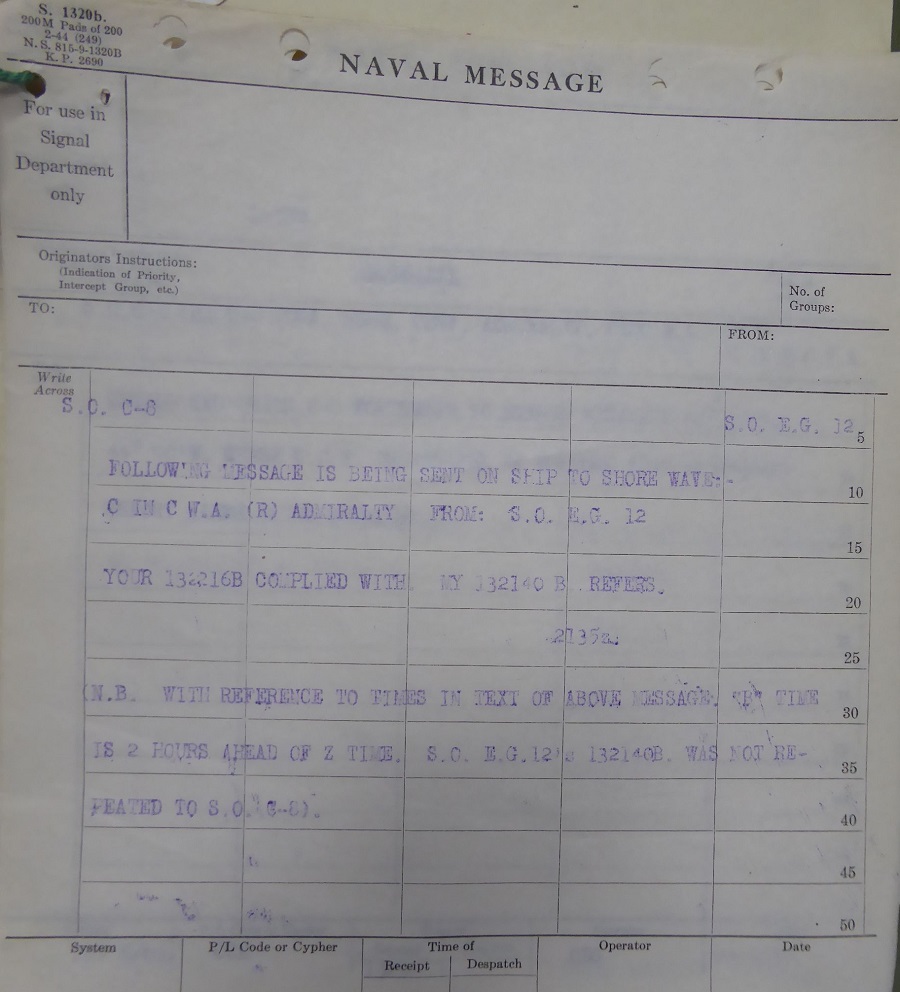 S. 1320b.
200M Pads of 200
2-44 (249)
N. S. 815-9-1320B
K. P. 2690
NAVAL MESSAGE
For use in
Signal
Department
only
Originators Instructions:
(Indication of Priority,
Intercept Group, etc.)
No. of
Groups:
TO:
FROM:
Write
Across
S.O. C-8
S.O. E.G. 12
5
FOLLOWING MESSAGE IS BEING SENT ON SHIP TO SHORE WAVE:-
10
C IN C W.A. (R) ADMIRALTY FROM: S.O. E.G. 12
15
YOUR 132216B COMPLIED WITH. MY 132140 B . REFERS.
20
2135z.
25
(N.B. WITH REFERENCE TO TIMES IN TEXT OF ABOVE MESSAGE. "B" TIME
30
IS 2 HOURS AHEAD OF Z TIME. S.O. E.G.12's 132140B. WAS NOT RE-
35
PEATED TO S.O. C-8).
40
45
50
System
P/L Code or Cypher
Time of
Receipt
Despatch
Operator
Date